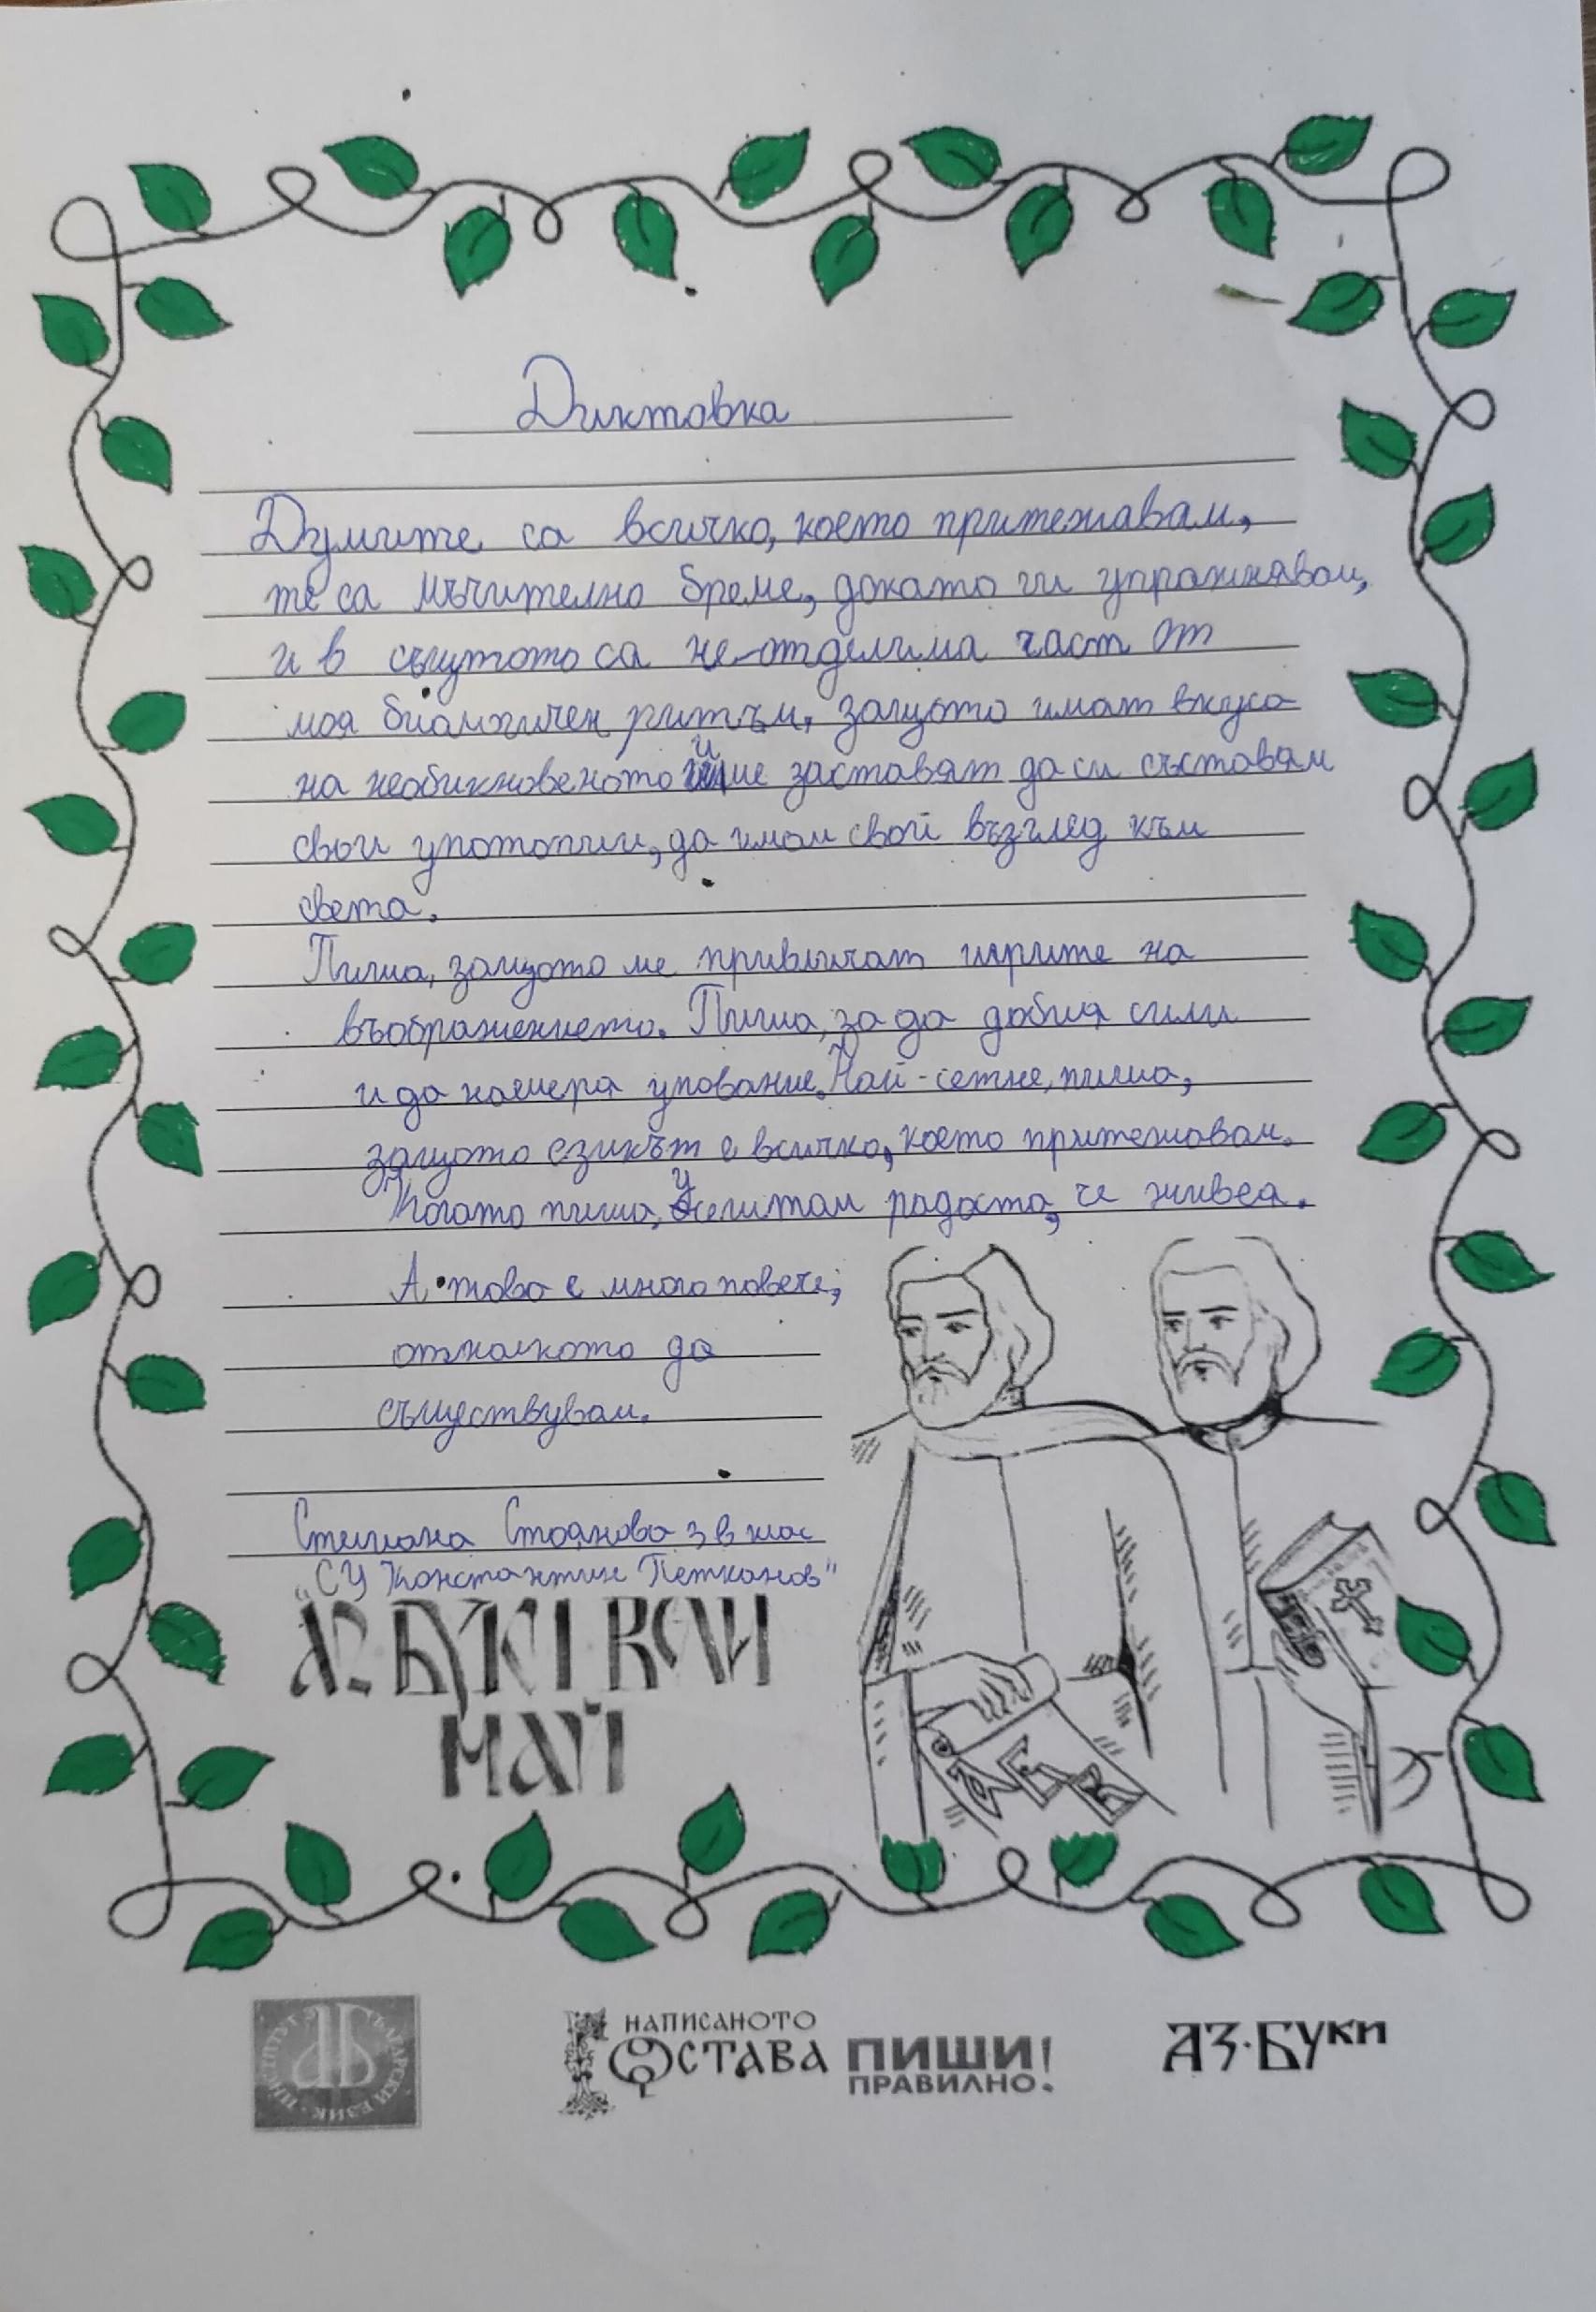 Диктовка
Думите са всичко, което притежавам,
те са мъчително бреме, докато ги упражнявам,
и в същтото са не-отделима част от
моя биологичен ритъм, защото имат вкуса
на необикновеното и ме заставят да си съставям
свои употопии, да имам свой възглед към
света.
Пиша, защото ме привличат игрите на
въображението. Пиша, за да добия сили
и да намеря упование. Най-сетне, пиша,
защото езикът е всичко, което притежавам.
Когато пиша, усещам радоста, че живея.
А това е много повече,
отколкото да
съществувам.
Стилиана Стоянова 3 в клас
"СУ Константин Петканов"
АЗ БУКИ ВЕДИ
МАЙ
ИНСТИТУТ ЗА БЪЛГАРСКИ ЕЗИК
НАПИСАНОТО
ОСТАВА
ПИШИ
ПРАВИЛНО!
АЗ·БУКИ